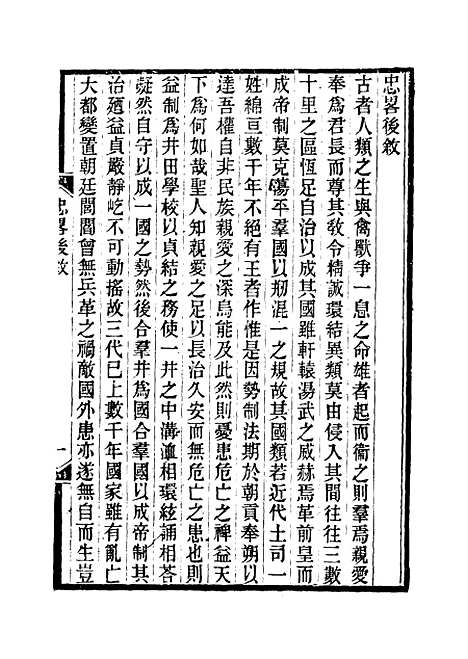 忠畧後敘
古者人類之生與禽獸爭一息之命雄者起而衞之則羣焉親愛
奉爲君長而尊其敎令精誠環結異類莫由侵入其間往往三數
十里之區恆足自治以成其國雖軒轅湯武之威赫焉革前皇而
成帝制莫克蕩平羣國以剏混一之規故其國類若近代土司一
姓綿亘數千年不絕有王者作惟是因勢制法期於朝貢奉朔以
達吾權自非民族親愛之深烏能及此然則憂患危亡之裨益天
下爲何如哉聖人知親愛之足以長治久安而無危亡之患也則
益制爲井田學校以貞結之務使一井之中溝洫相環絃誦相荅
凝然自守以成一國之勢然後合羣井爲國合羣國以成帝制其
治廼益貞嚴靜屹不可動搖故三代已上數千年國家雖有亂亡
大都變置朝廷閭閻曾無兵革之禍敵國外患亦遂無自而生豈
忠畧後敘
一